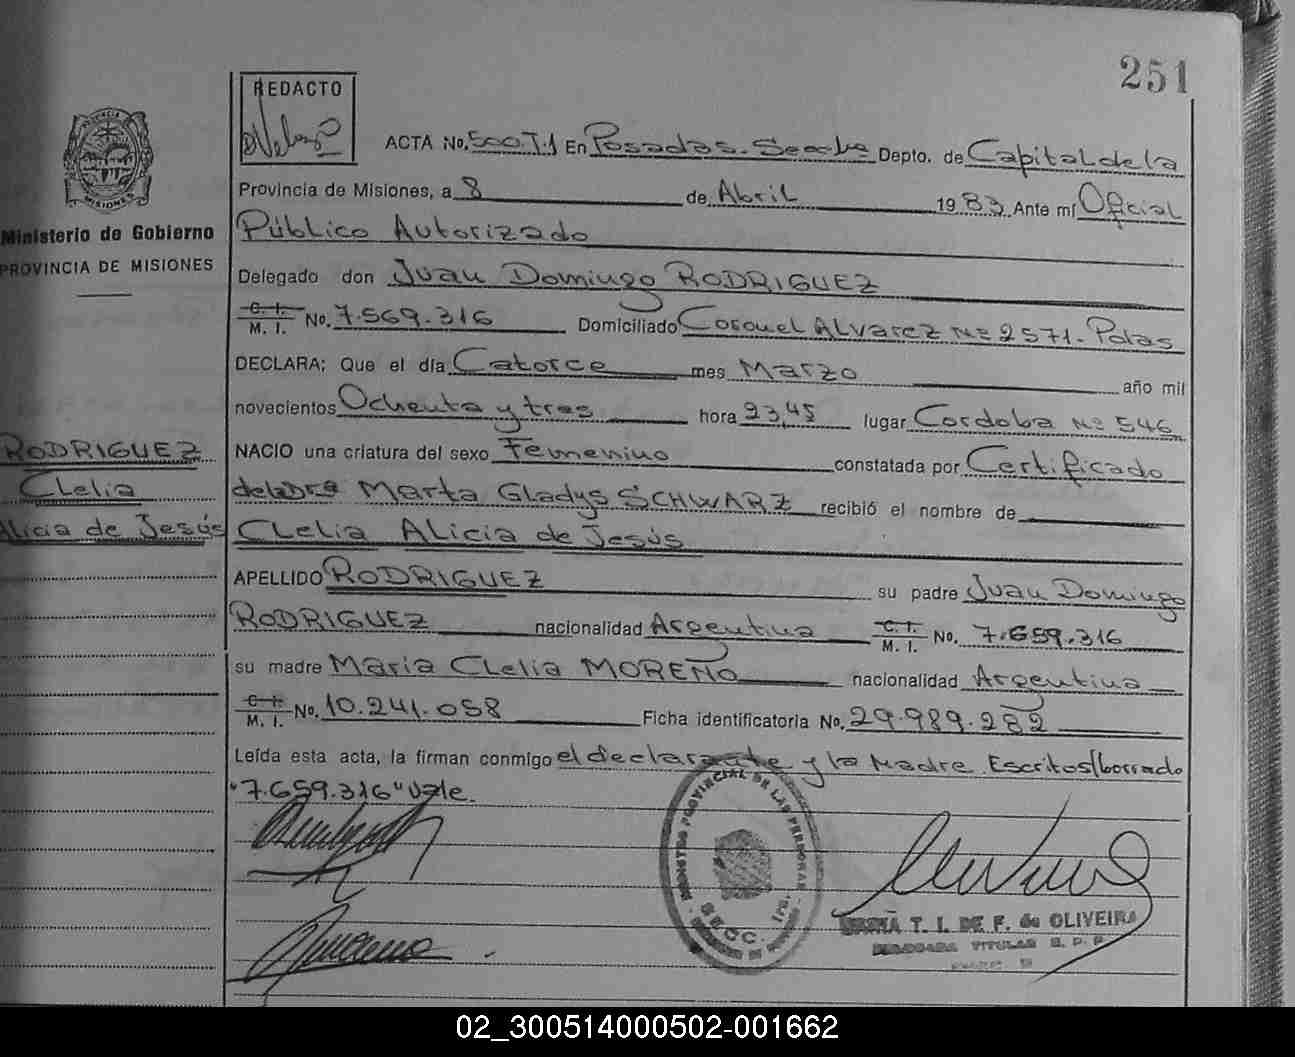 251
REDACTO
PROVINCIA
MISIONES
Ministerio de Gobierno
PROVINCIA DE MISIONES
ACTA No. 500.T.1 En Posadas. Depto. de Capital de la
Provincia de Misiones, a 8 de Abril 1983 Ante mí Oficial
Público Autorizado
Delegado don Juan Domingo RODRIGUEZ
C. I.
M. I. No. 7.569.316 Domiciliado Coronel ALvarez Nº 2571- Pdas
DECLARA; Que el día Catorce mes Marzo año mil
novecientos Ochenta y tres hora 23,45 lugar Cordoba Nº 546
NACIO una criatura del sexo Femenino constatada por Certificado
RODRIGUEZ
CLelia
Alicia de Jesús
de la Dra Marta Gladys SCHWARZ recibió el nombre de
CLelia ALicia de Jesús
APELLIDO RODRIGUEZ su padre Juan Domingo
RODRIGUEZ nacionalidad Argentina C. I.
M. I. No. 7.659.316
su madre Maria CLelia MOREÑO nacionalidad Argentina
C. I.
M. I. No. 10.241.058 Ficha identificatoria No. 29.989.282
Leída esta acta, la firman conmigo el declarante y la Madre. Escritos/borrado
"7.659.316" Vale.
REGISTRO PROVINCIAL DE LAS PERSONAS
SECC. 1ra.
MARIA T. I. DE F. de OLIVEIRA
DELEGADA TITULAR R. P. P.
02_300514000502-001662